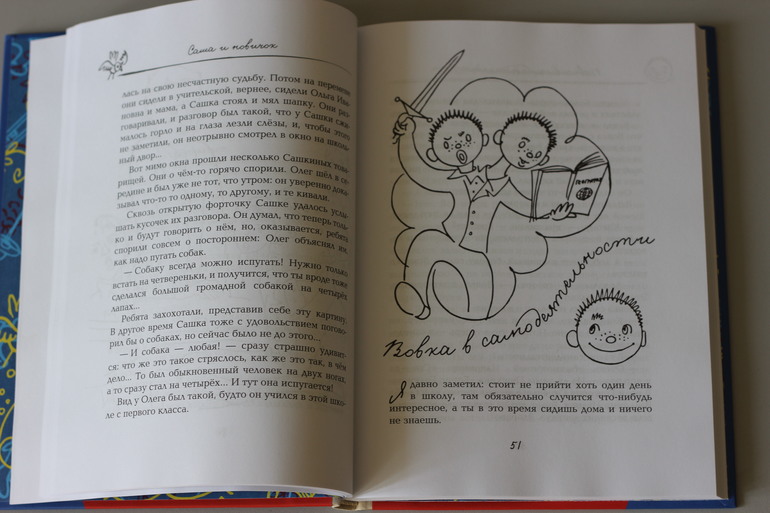 Саша и новичок
лась на свою несчастную судьбу. Потом на перемене
они сидели в учительской, вернее, сидели Ольга Ива-
новна и мама, а Сашка стоял и мял шапку. Они раз-
говаривали, и разговор был такой, что у Сашки сжи-
малось горло и на глаза лезли слёзы, и, чтобы этого
не заметили, он неотрывно смотрел в окно на школь-
ный двор...
Вот мимо окна прошли несколько Сашкиных това-
рищей. Они о чём-то горячо спорили. Олег шёл в се-
редине и был уже не тот, что утром: он уверенно дока-
зывал что-то то одному, то другому, и те кивали.
Сквозь открытую форточку Сашке удалось услы-
шать кусочек их разговора. Он думал, что теперь толь-
ко и будут говорить о нём, но, оказывается, ребята
спорили совсем о постороннем: Олег объяснял им,
как надо пугать собак.
— Собаку всегда можно испугать! Нужно только
встать на четвереньки, и получится, что ты вроде тоже
сделался большой громадной собакой на четырёх
лапах...
Ребята захохотали, представив себе эту картину.
В другое время Сашка тоже с удовольствием погово-
рил бы о собаках, но сейчас было не до этого...
— И собака — любая! — сразу страшно удивит-
ся: что же это такое стряслось, как же это так, в чём
дело... То был обыкновенный человек на двух ногах,
а то сразу стал на четырёх... И тут она испугается!
Вид у Олега был такой, будто он учился в этой шко-
ле с первого класса.
Вовка в самодеятельности
Я давно заметил: стоит не прийти хоть один день
в школу, там обязательно случится что-нибудь
интересное, а ты в это время сидишь дома и ничего
не знаешь.
51